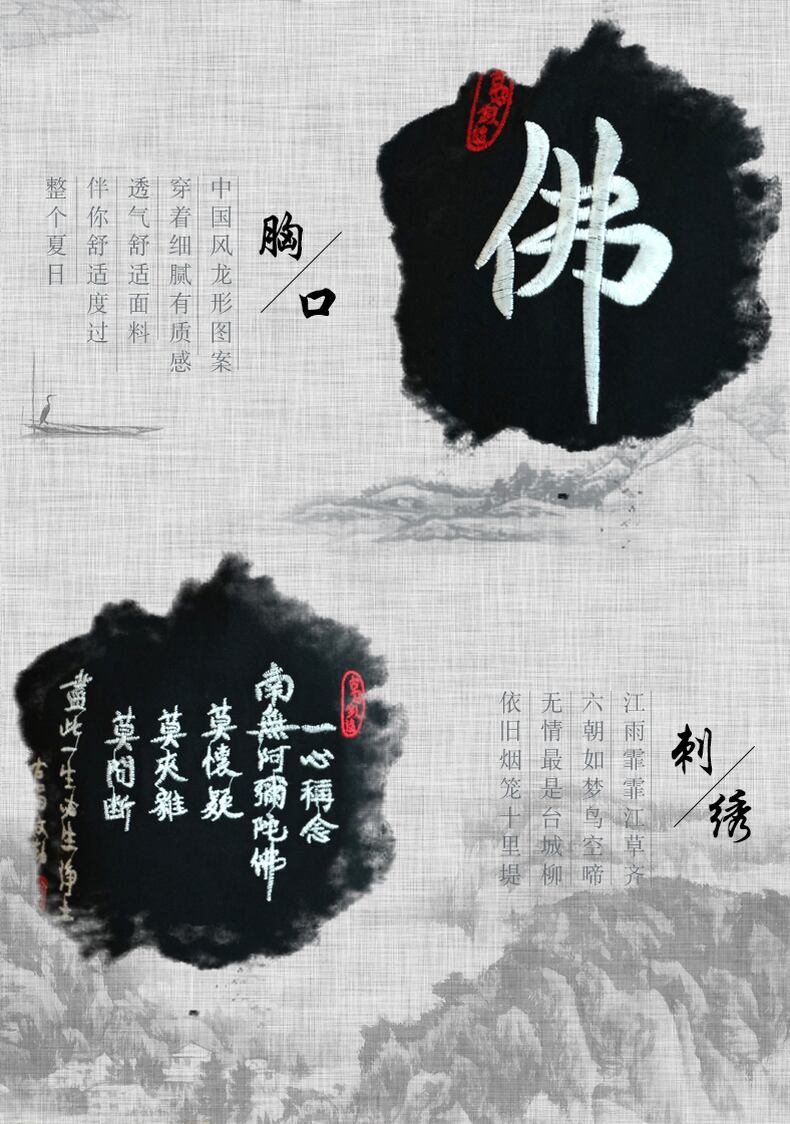 佛
胸口
中国风龙形图案
穿着细腻有质感
透气舒适面料
伴你舒适度过
整个夏日
一心稱念
南無阿彌陀佛
莫懷疑
莫夾雜
莫間断
盡此一生必生淨土
刺绣
江雨霏霏江草齐
六朝如梦鸟空啼
无情最是台城柳
依旧烟笼十里堤